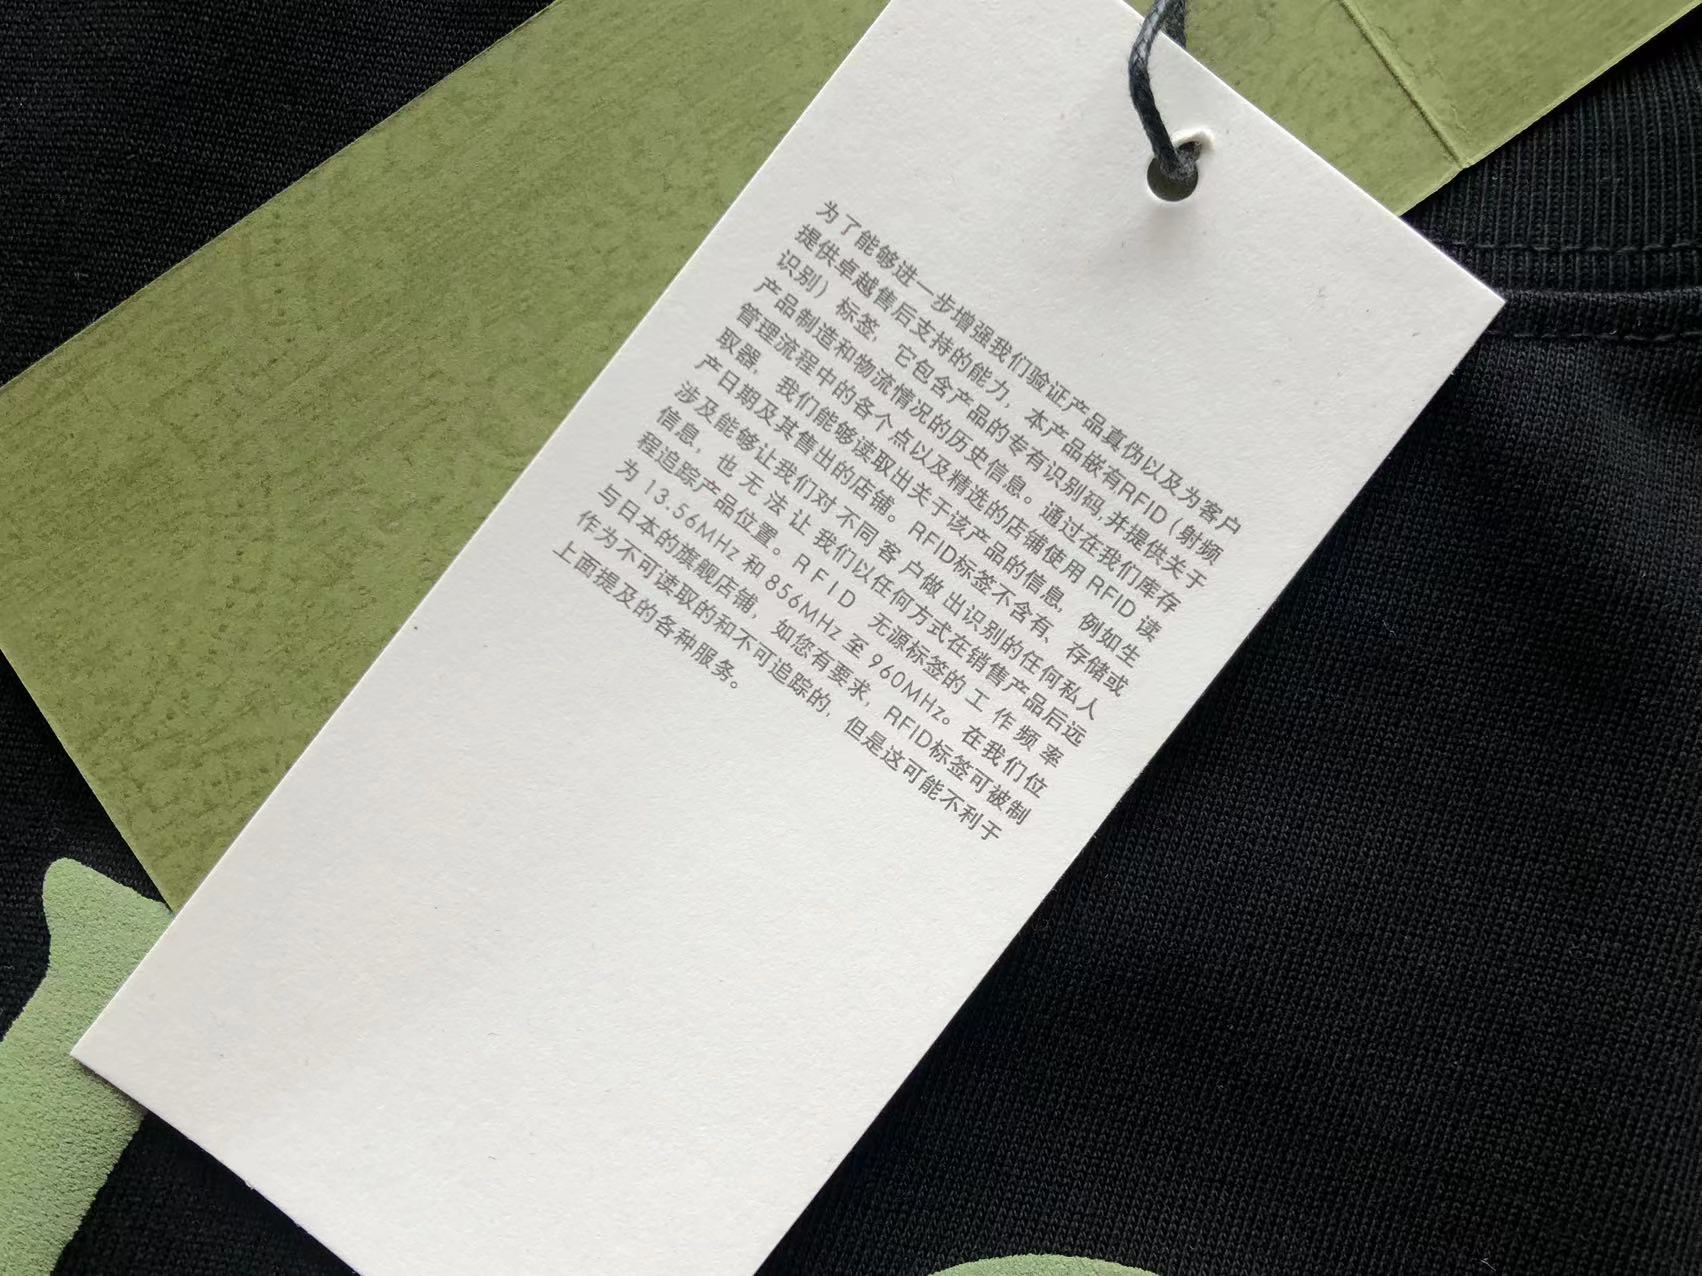 为了能够进一步增强我们验证产品真伪以及为客户
提供卓越售后支持的能力，本产品嵌有RFID（射频
识别）标签，它包含产品的专有识别码，并提供关于
产品制造和物流情况的历史信息。通过在我们库存
管理流程中的各个点以及精选的店铺使用 RFID 读
取器，我们能够读取出关于该产品的信息，例如生
产日期及其售出的店铺。RFID标签不含有、存储或
涉及能够让我们对不同客户做出识别的任何私人
信息，也无法让我们以任何方式在销售产品后远
程追踪产品位置。RFID 无源标签的工作频率
为 13.56MHz 和 856MHz 至 960MHz。在我们位
与日本的旗舰店铺，如您有要求，RFID标签可被制
作为不可读取的和不可追踪的，但是这可能不利于
上面提及的各种服务。